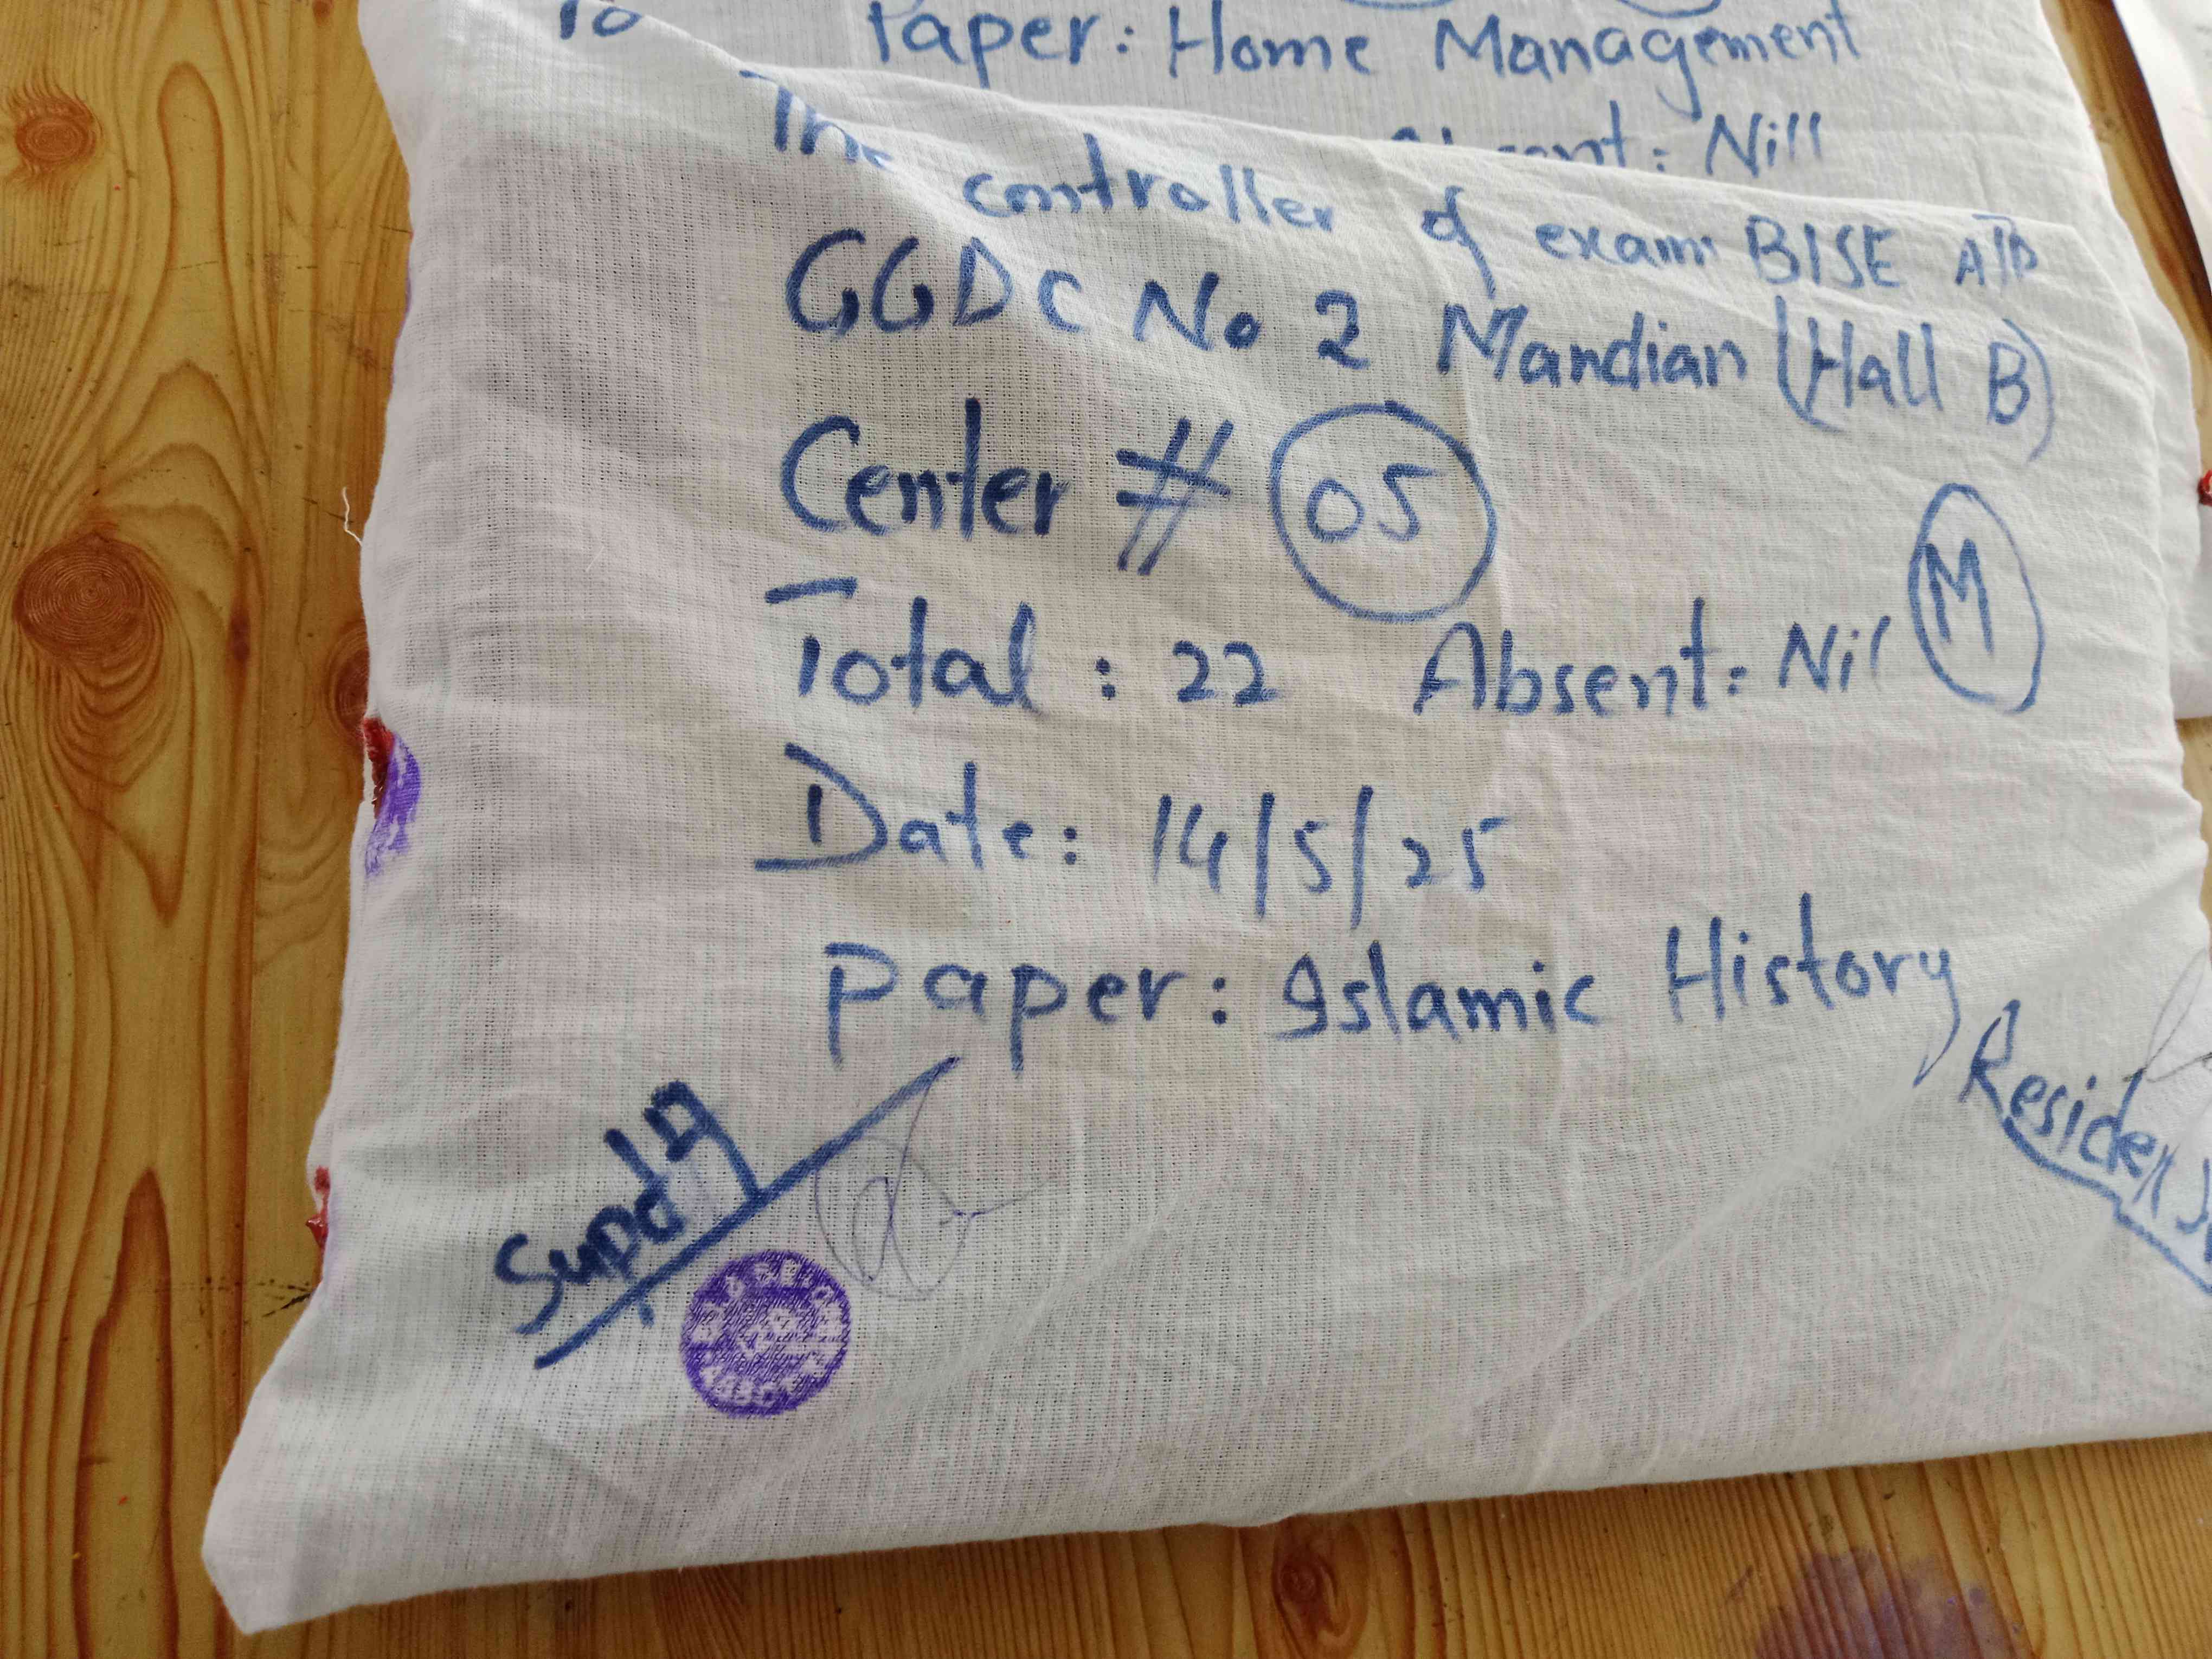 Paper: Home Management
Absent: Nill
To
The controller of exam BISE ATD
GGDC No 2 Mandian (Hall B)
Center # 05
M
Total : 22 Absent: Nil
Date: 14/5/25
Paper: Islamic History
Supdt